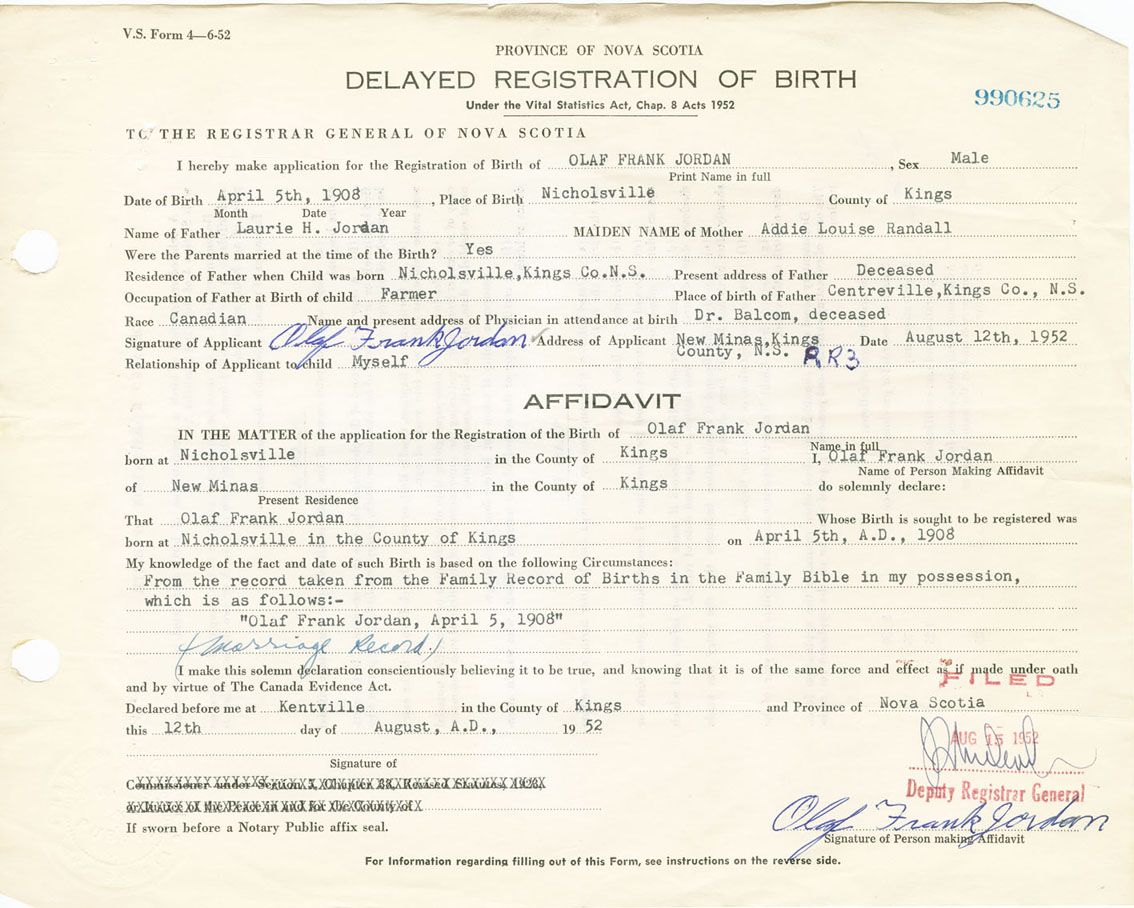 V.S. Form 4—6-52
PROVINCE OF NOVA SCOTIA
DELAYED REGISTRATION OF BIRTH
Under the Vital Statistics Act, Chap. 8 Acts 1952
990625
TO THE REGISTRAR GENERAL OF NOVA SCOTIA
I hereby make application for the Registration of Birth of OLAF FRANK JORDAN, Sex Male
Print Name in full
Date of Birth April 5th, 1908, Place of Birth Nicholsville County of Kings
Month Date Year
Name of Father Laurie H. Jordan MAIDEN NAME of Mother Addie Louise Randall
Were the Parents married at the time of the Birth? Yes
Residence of Father when Child was born Nicholsville, Kings Co. N.S. Present address of Father Deceased
Occupation of Father at Birth of child Farmer Place of birth of Father Centreville, Kings Co., N.S.
Race Canadian Name and present address of Physician in attendance at birth Dr. Balcom, deceased
Signature of Applicant Olaf Frank Jordan Address of Applicant New Minas, Kings Date August 12th, 1952
County, N.S. RR3
Relationship of Applicant to child Myself
AFFIDAVIT
IN THE MATTER of the application for the Registration of the Birth of Olaf Frank Jordan
Name in full
born at Nicholsville in the County of Kings I, Olaf Frank Jordan
Name of Person Making Affidavit
of New Minas in the County of Kings do solemnly declare:
Present Residence
That Olaf Frank Jordan Whose Birth is sought to be registered was
born at Nicholsville in the County of Kings on April 5th, A.D., 1908
My knowledge of the fact and date of such Birth is based on the following Circumstances:
From the record taken from the Family Record of Births in the Family Bible in my possession,
which is as follows:-
"Olaf Frank Jordan, April 5, 1908"
(Marriage Record.)
I make this solemn declaration conscientiously believing it to be true, and knowing that it is of the same force and effect as if made under oath
and by virtue of The Canada Evidence Act.
FILED
Declared before me at Kentville in the County of Kings and Province of Nova Scotia
this 12th day of August, A.D., 19 52
AUG 15 1952
Signature of
Commissioner under Section 7, Chapter 38, Revised Statutes, 1923,
Deputy Registrar General
or Justice of the Peace in and for the County of
Olaf Frank Jordan
If sworn before a Notary Public affix seal.
Signature of Person making Affidavit
For Information regarding filling out of this Form, see instructions on the reverse side.